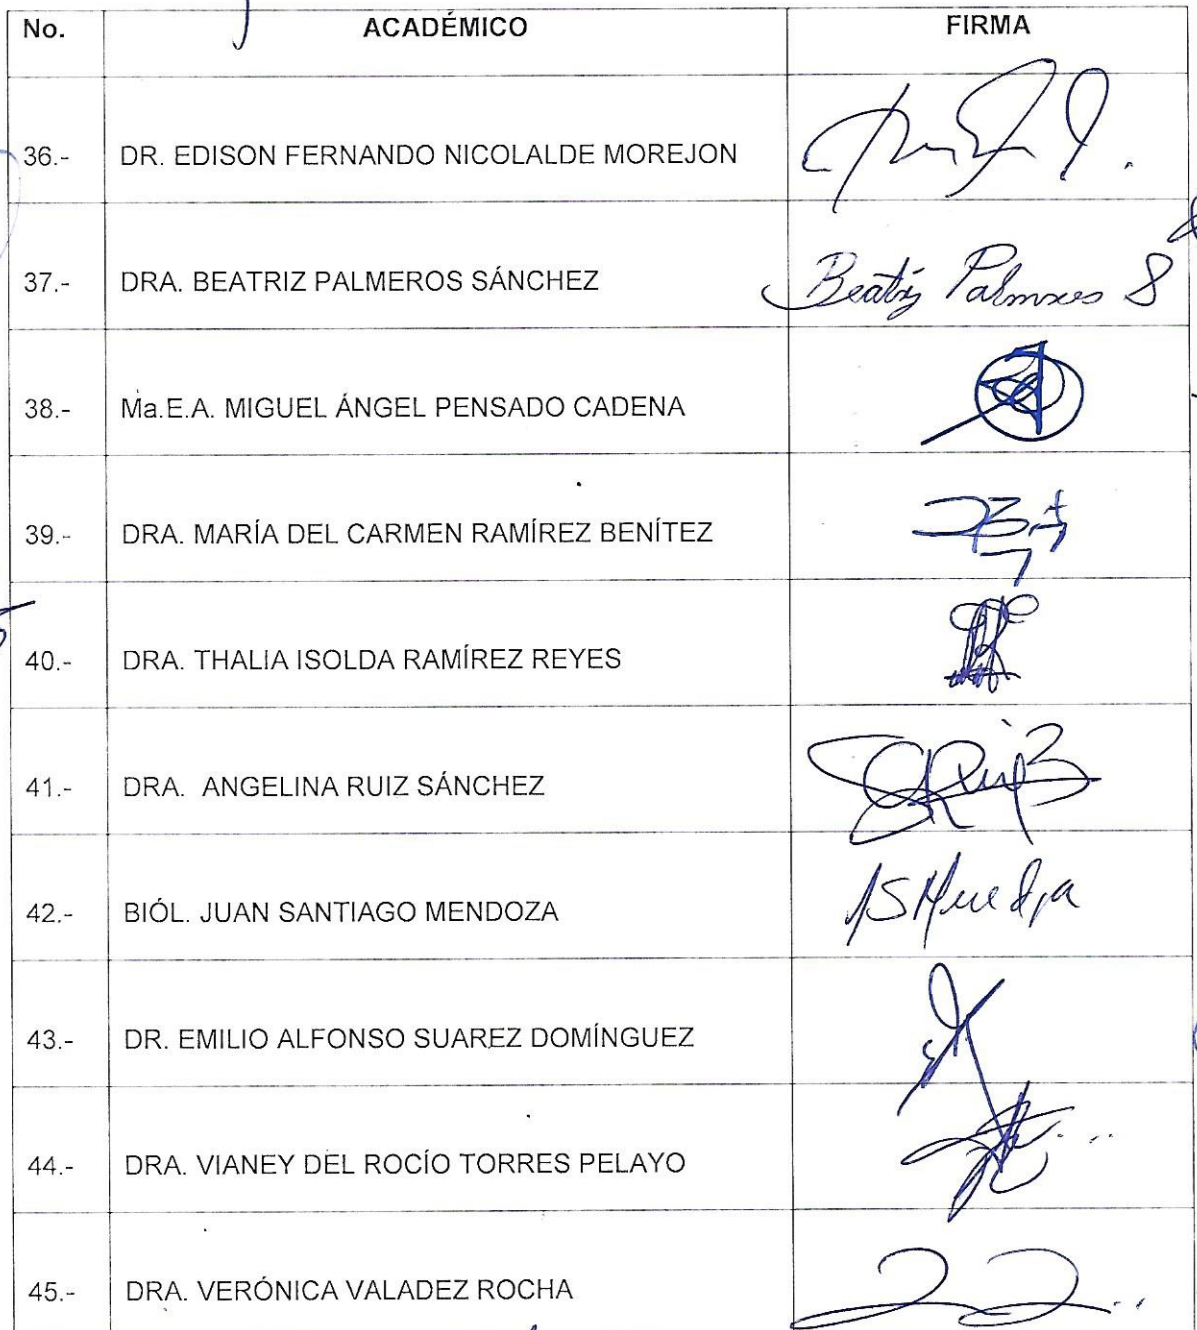 No. ACADÉMICO FIRMA
36.- DR. EDISON FERNANDO NICOLALDE MOREJON
37.- DRA. BEATRIZ PALMEROS SÁNCHEZ Beatriz Palmeros S
38.- Ma.E.A. MIGUEL ÁNGEL PENSADO CADENA
39.- DRA. MARÍA DEL CARMEN RAMÍREZ BENÍTEZ
40.- DRA. THALIA ISOLDA RAMÍREZ REYES
41.- DRA. ANGELINA RUIZ SÁNCHEZ
42.- BIÓL. JUAN SANTIAGO MENDOZA
43.- DR. EMILIO ALFONSO SUAREZ DOMÍNGUEZ
44.- DRA. VIANEY DEL ROCÍO TORRES PELAYO
45.- DRA. VERÓNICA VALADEZ ROCHA